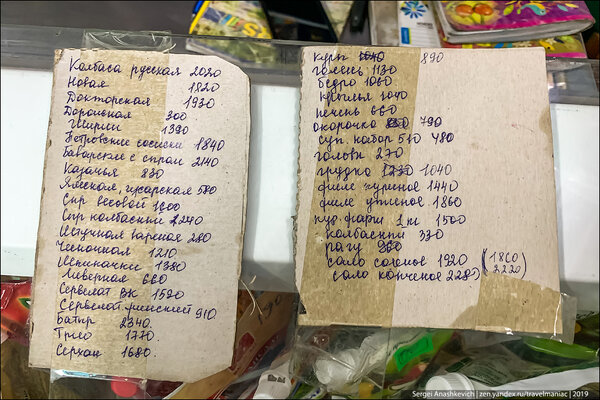 Колбаса русская 2020
Новая 1820
Докторская 1930
Дорожная 300
Ширли 1390
Петровские сосиски 1840
Баварские с сыром 2140
Казачья 830
Ямская, гусарская 580
Сыр весовой 1900
Сыр колбасный 2240
Ветчинная вареная 280
Чесночная 1210
Шпикачки 1380
Ливерная 660
Сервелат ВК 1520
Сервелат финский 910
Батыр 2340.
Трио 1770.
Серхан 1680.
куры 890
голень 1130
бедро 1060
крылья 1040
печень 660
окорочка 790
суп. набор 510 480
головы 270
грудка 1040
филе куриное 1440
филе утиное 1860
кур. фарш 1 кг 1500
колбаски 330
рагу 960
сало соленое 1920 (1860
сало копченое 2280 2220)
Sergei Anashkevich | zen.yandex.ru/travelmaniac | 2019